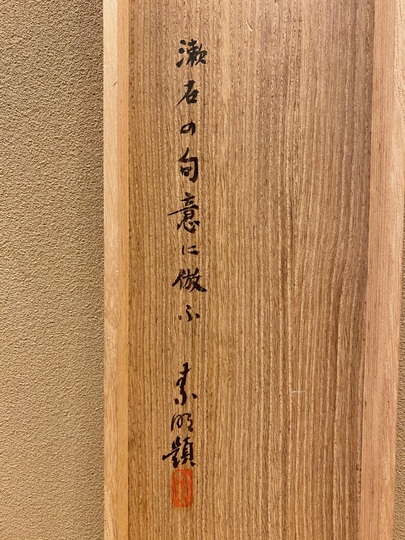 漱石の句意に倣ふ 素明題